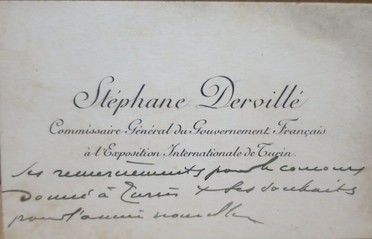 Stéphane Dervillé
Commissaire Général du Gouvernement Français
à l'Exposition Internationale de Turin.
Ses remerciements pour le concours
donné à Turin & ses souhaits
pour l'année nouvelle